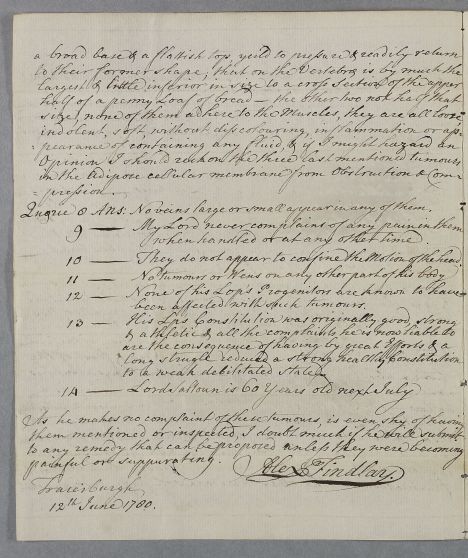 a broad base & a flattish top, yeild to pressure & readily return
to their former shape, that on the Vertebra is by much the
largest & little inferior in size to a cross Section of the upper
half of a penny Loaf of bread — the other two not half that
size, none of them adhere to the Muscles, they are all loose
indolent, soft, without discolouring, inflammation or ap-
=pearance of containing any fluid, & if I might hazard an
Opinion I should reckon the three last mentioned tumours
in the Adipose cellular membrane from Obstruction & Com-
=pression.
Querie 8 Ans: No veins large or small appear in any of them.
9 — My Lord never complains of any pain in them
when handled or at any other time.
10 — They do not appear to confine the Motion of the head
11 — No tumours or Wens on any other part of his body
12 — None of his Lops Progenitors are known to have
been affected with such tumours.
13 — His Lops Constitution was originally good, strong
& athletic & all the complaints he is now liable to
are the consequence of having by great Efforts & a
long strugle reduced a strong healthy Constitution
to a weak debilitated State.
14 — Lord Saltoun is 60 Years old next July
As he makes no complaint of these tumours, is even shy of having
them mentioned or inspected, I doubt much if he will submit
to any remedy that can be proposed unless they were becoming
painful or suppurating.
Alexr Findlay.
Fraserburgh
12th June 1780.